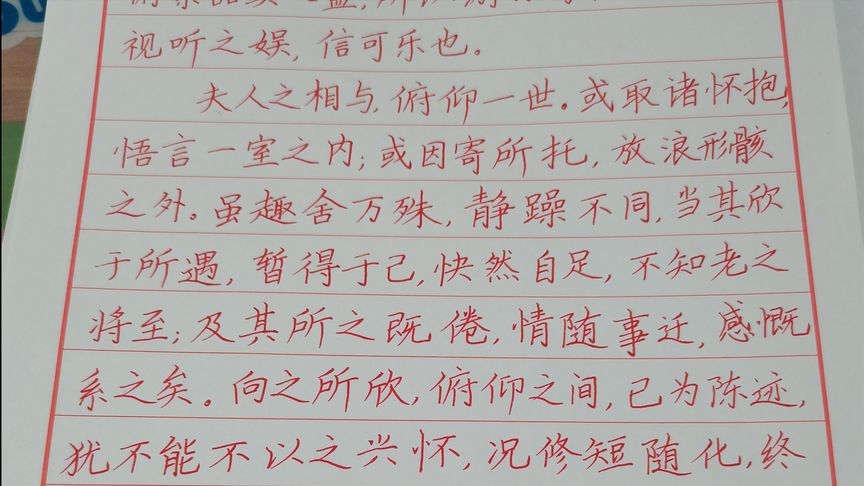 视听之娱，信可乐也。
夫人之相与，俯仰一世。或取诸怀抱，
悟言一室之内；或因寄所托，放浪形骸
之外。虽趣舍万殊，静躁不同，当其欣
于所遇，暂得于己，快然自足，不知老之
将至；及其所之既倦，情随事迁，感慨
系之矣。向之所欣，俯仰之间，已为陈迹，
犹不能不以之兴怀，况修短随化，终